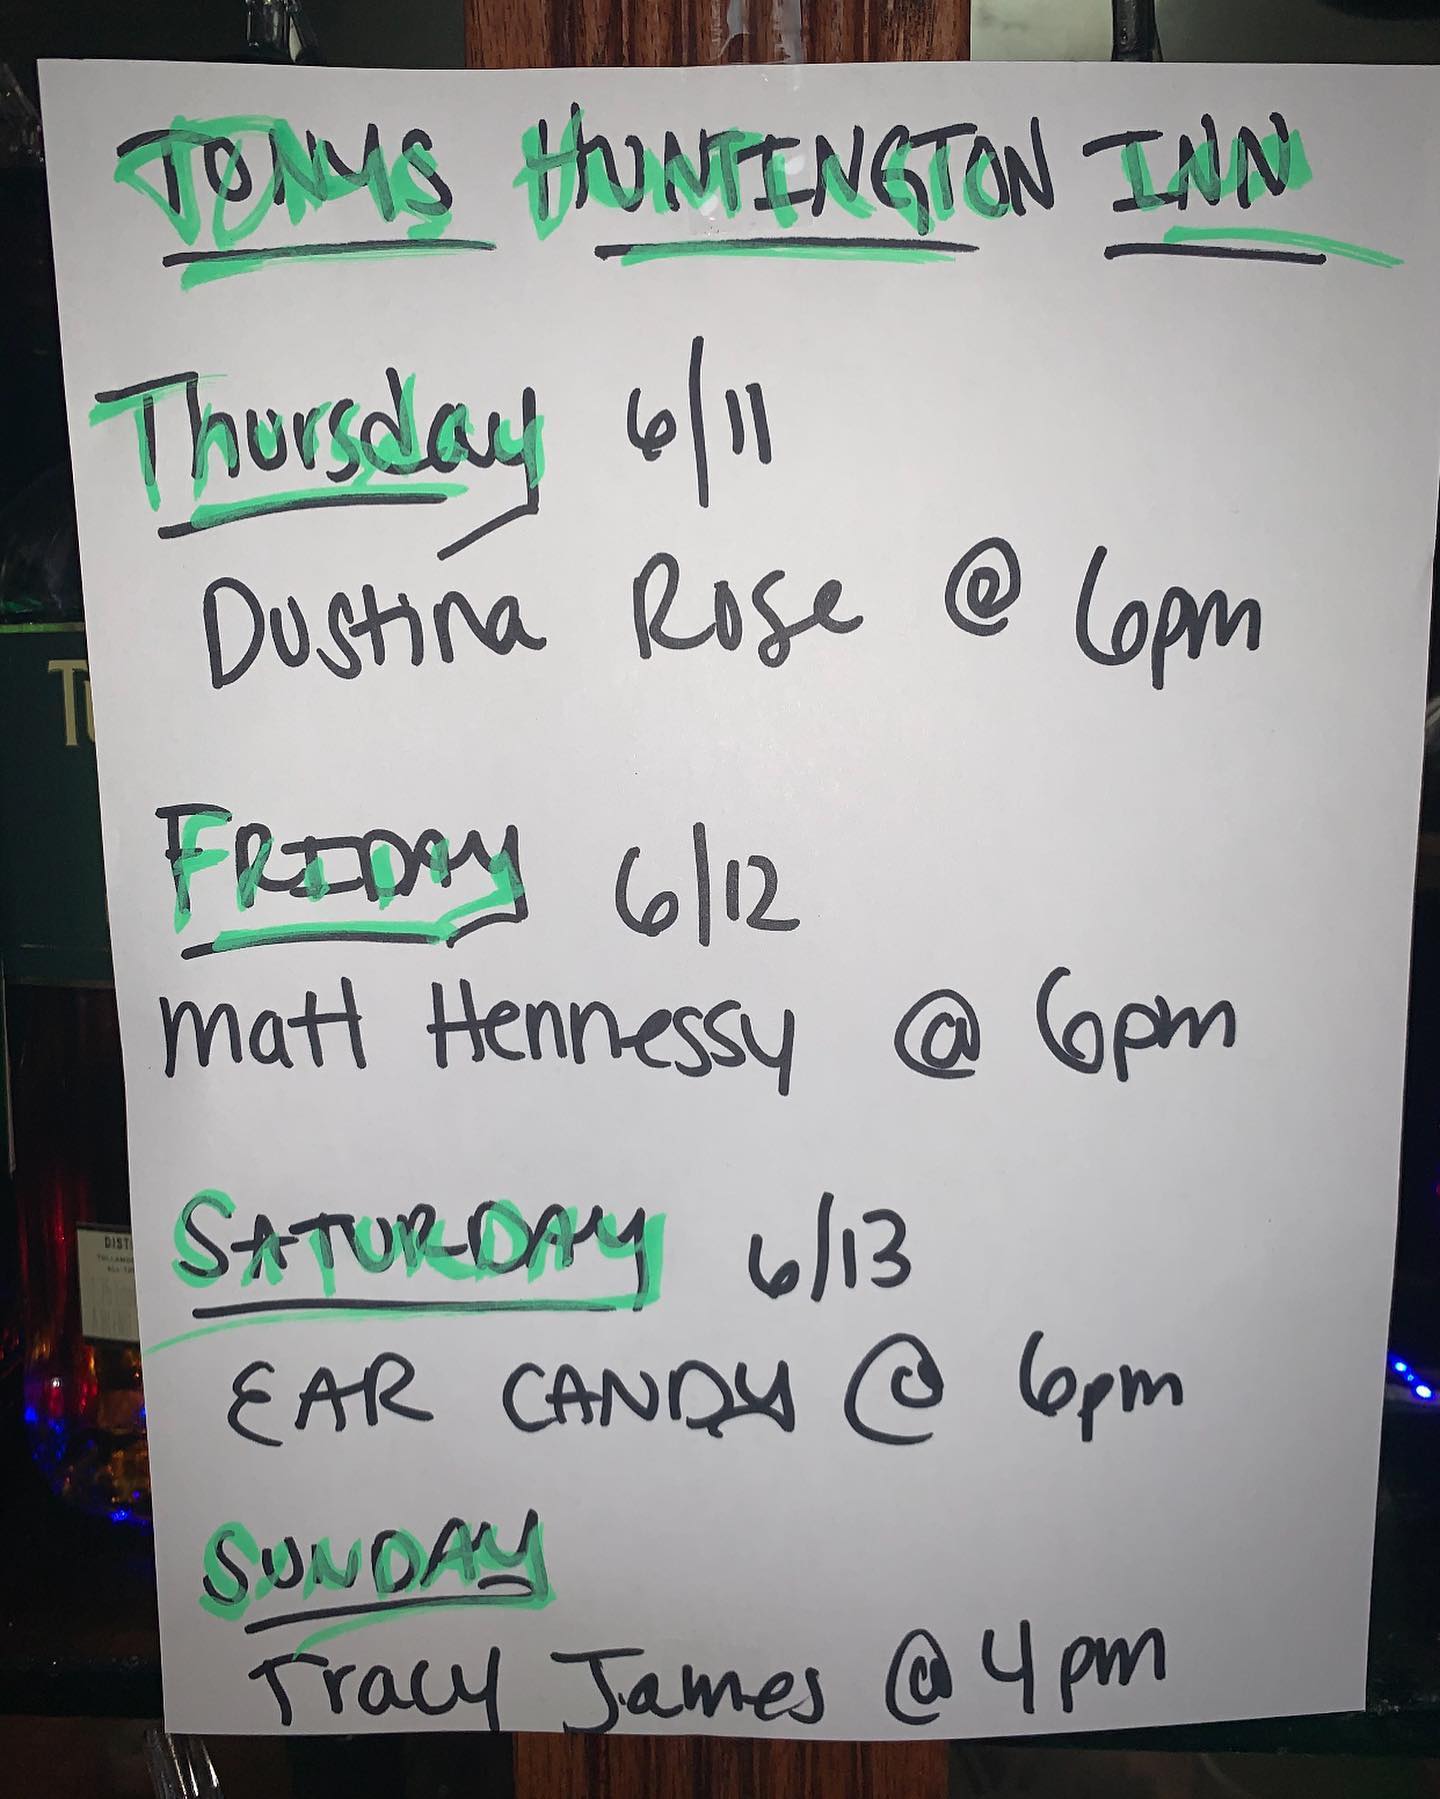 TONYS HUNTINGTON INN
Thursday 6/11
Dustina Rose @ 6pm
FRIDAY 6/12
Matt Hennessy @ 6pm
SATURDAY 6/13
EAR CANDY @ 6pm
SUNDAY
Tracy James @ 4pm
TU
DIST